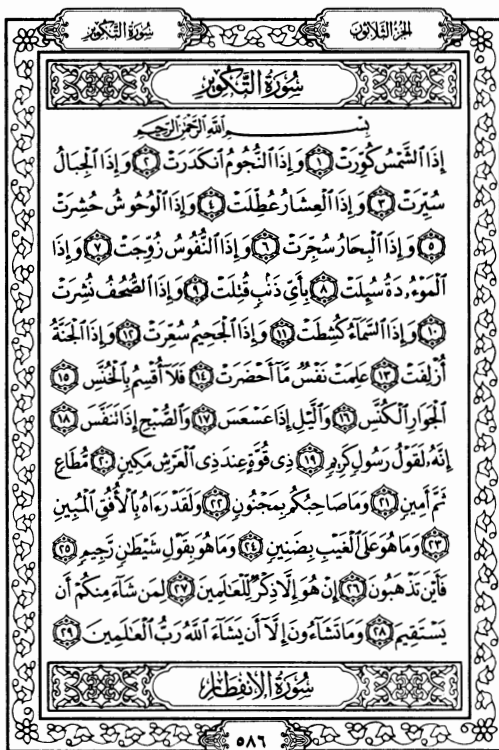 سُورَةُ التَّكْوِيرِ
الجُزْءُ الثَّلَاثُونَ
سُورَةُ التَّكْوِيرِ
بِسْمِ اللَّهِ الرَّحْمَٰنِ الرَّحِيمِ
إِذَا الشَّمْسُ كُوِّرَتْ ١ وَإِذَا النُّجُومُ انكَدَرَتْ ٢ وَإِذَا الْجِبَالُ
سُيِّرَتْ ٣ وَإِذَا الْعِشَارُ عُطِّلَتْ ٤ وَإِذَا الْوُحُوشُ حُشِرَتْ
٥ وَإِذَا الْبِحَارُ سُجِّرَتْ ٦ وَإِذَا النُّفُوسُ زُوِّجَتْ ٧ وَإِذَا
الْمَوْءُۥدَةُ سُئِلَتْ ٨ بِأَيِّ ذَنۢبٍ قُتِلَتْ ٩ وَإِذَا الصُّحُفُ نُشِرَتْ
١٠ وَإِذَا السَّمَآءُ كُشِطَتْ ١١ وَإِذَا الْجَحِيمُ سُعِّرَتْ ١٢ وَإِذَا الْجَنَّةُ
أُزْلِفَتْ ١٣ عَلِمَتْ نَفْسٌ مَّآ أَحْضَرَتْ ١٤ فَلَآ أُقْسِمُ بِالْخُنَّسِ ١٥
الْجَوَارِ الْكُنَّسِ ١٦ وَالَّيْلِ إِذَا عَسْعَسَ ١٧ وَالصُّبْحِ إِذَا تَنَفَّسَ ١٨
إِنَّهُۥ لَقَوْلُ رَسُولٍ كَرِيمٍ ١٩ ذِى قُوَّةٍ عِندَ ذِى الْعَرْشِ مَكِينٍ ٢٠ مُّطَاعٍ
ثَمَّ أَمِينٍ ٢١ وَمَا صَاحِبُكُم بِمَجْنُونٍ ٢٢ وَلَقَدْ رَءَاهُ بِالْأُفُقِ الْمُبِينِ
٢٣ وَمَا هُوَ عَلَى الْغَيْبِ بِضَنِينٍ ٢٤ وَمَا هُوَ بِقَوْلِ شَيْطَٰنٍ رَّجِيمٍ ٢٥
فَأَيْنَ تَذْهَبُونَ ٢٦ إِنْ هُوَ إِلَّا ذِكْرٌ لِّلْعَٰلَمِينَ ٢٧ لِمَن شَآءَ مِنكُمْ أَن
يَسْتَقِيمَ ٢٨ وَمَا تَشَآءُونَ إِلَّآ أَن يَشَآءَ اللَّهُ رَبُّ الْعَٰلَمِينَ ٢٩
سُورَةُ الِانفِطَارِ
٥٨٦